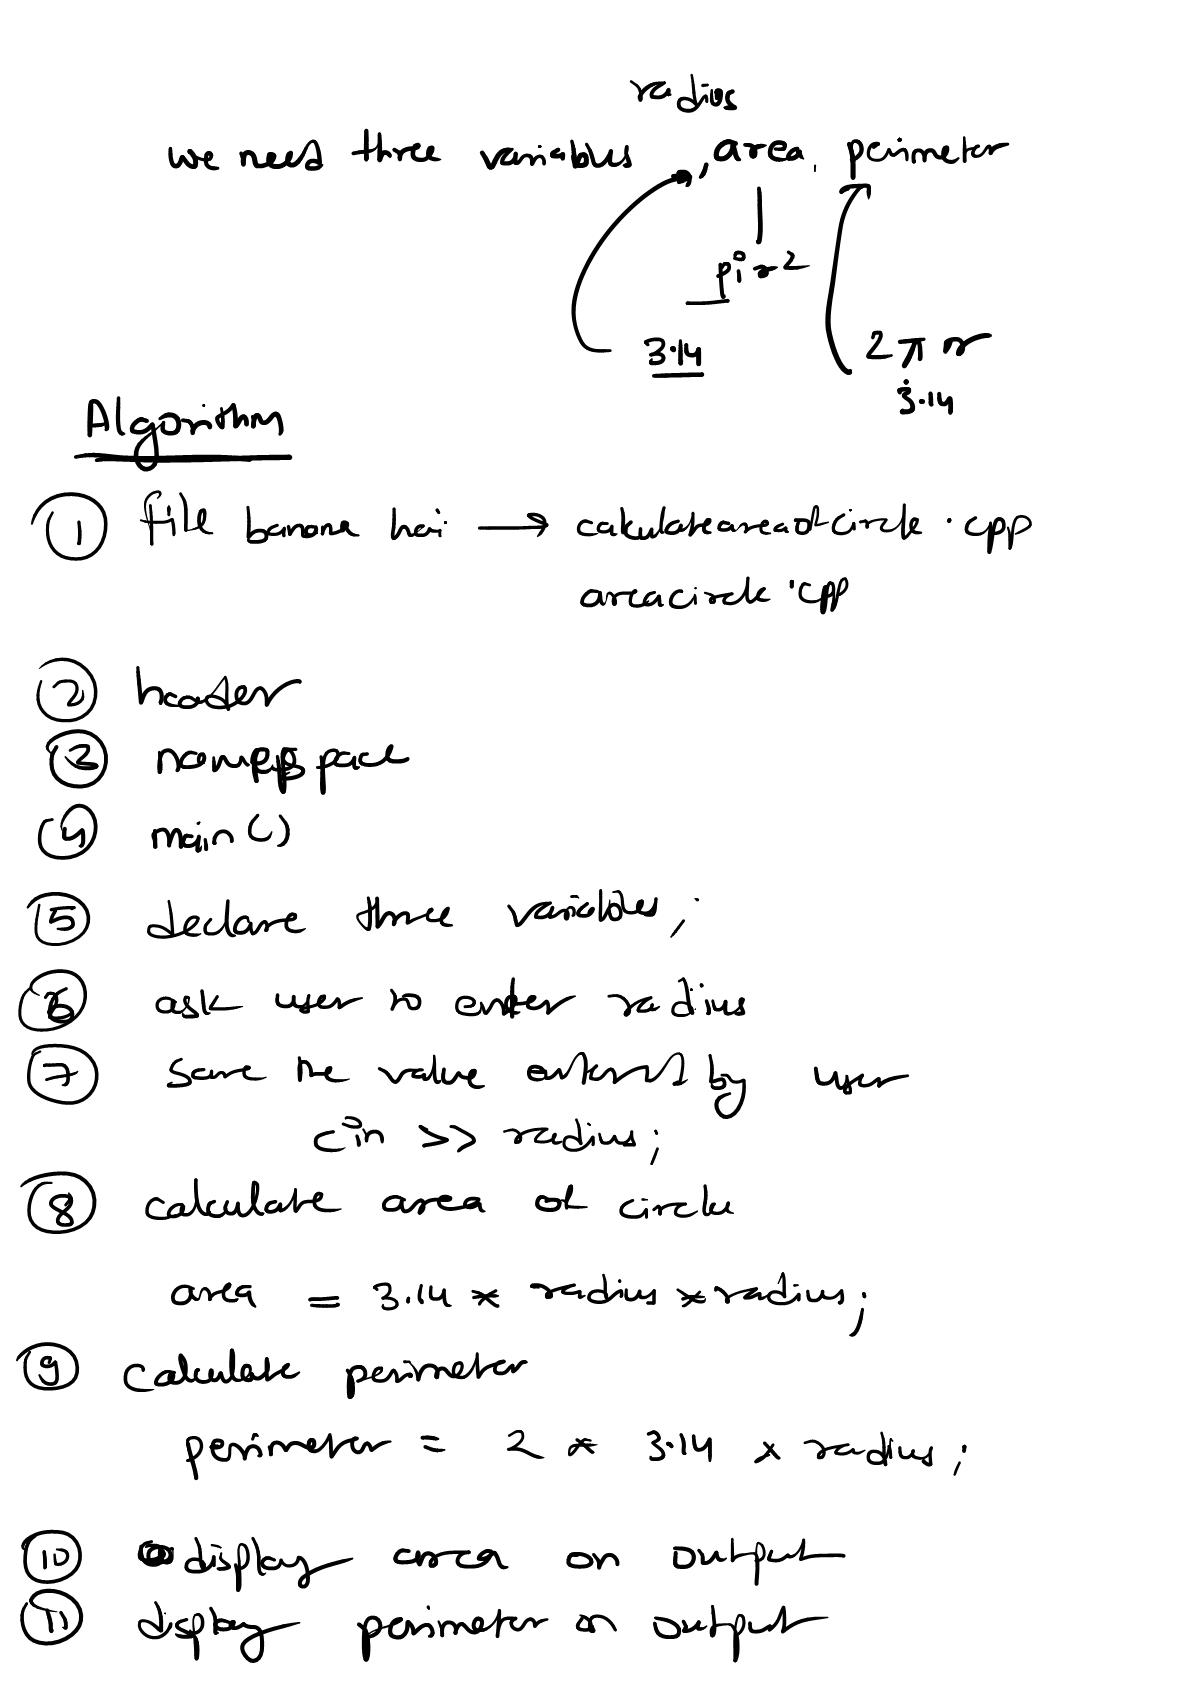 radius
we need three variables , area, perimeter
pi r 2
3.14
2 π r
3.14
Algorithm
① file banana hai → calculateareaofcircle . cpp
areacircle .cpp
② header
③ pace
④ main ( )
⑤ declare three variables ;
⑥ ask user to enter radius
⑦ save the value entered by user
cin >> radius ;
⑧ calculate area of circle
area = 3.14 * radius * radius ;
⑨ calculate perimeter
perimeter = 2 * 3.14 * radius ;
⑩ display area on output
⑪ display perimeter on output